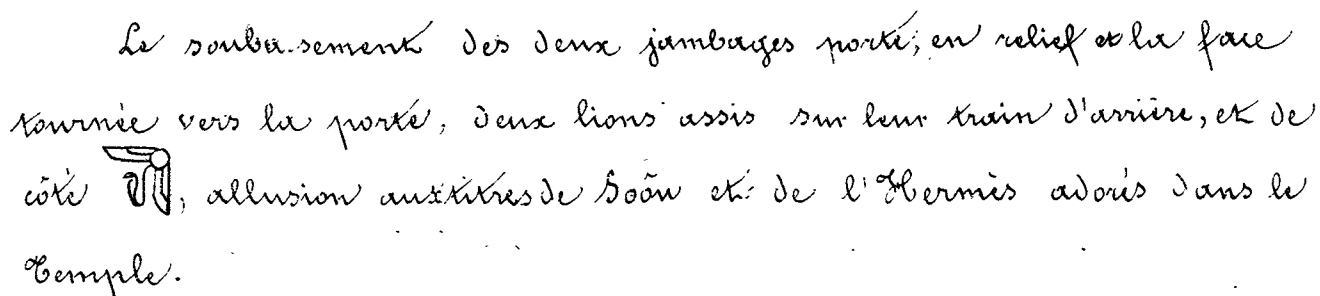 Le soubasement des deux jambages porte, en relief et la face
tournée vers la porte, deux lions assis sur leur train d'arrière, et de
côté , allusion aux titres de Soôu et de l'Hermès adorés dans le
Temple.